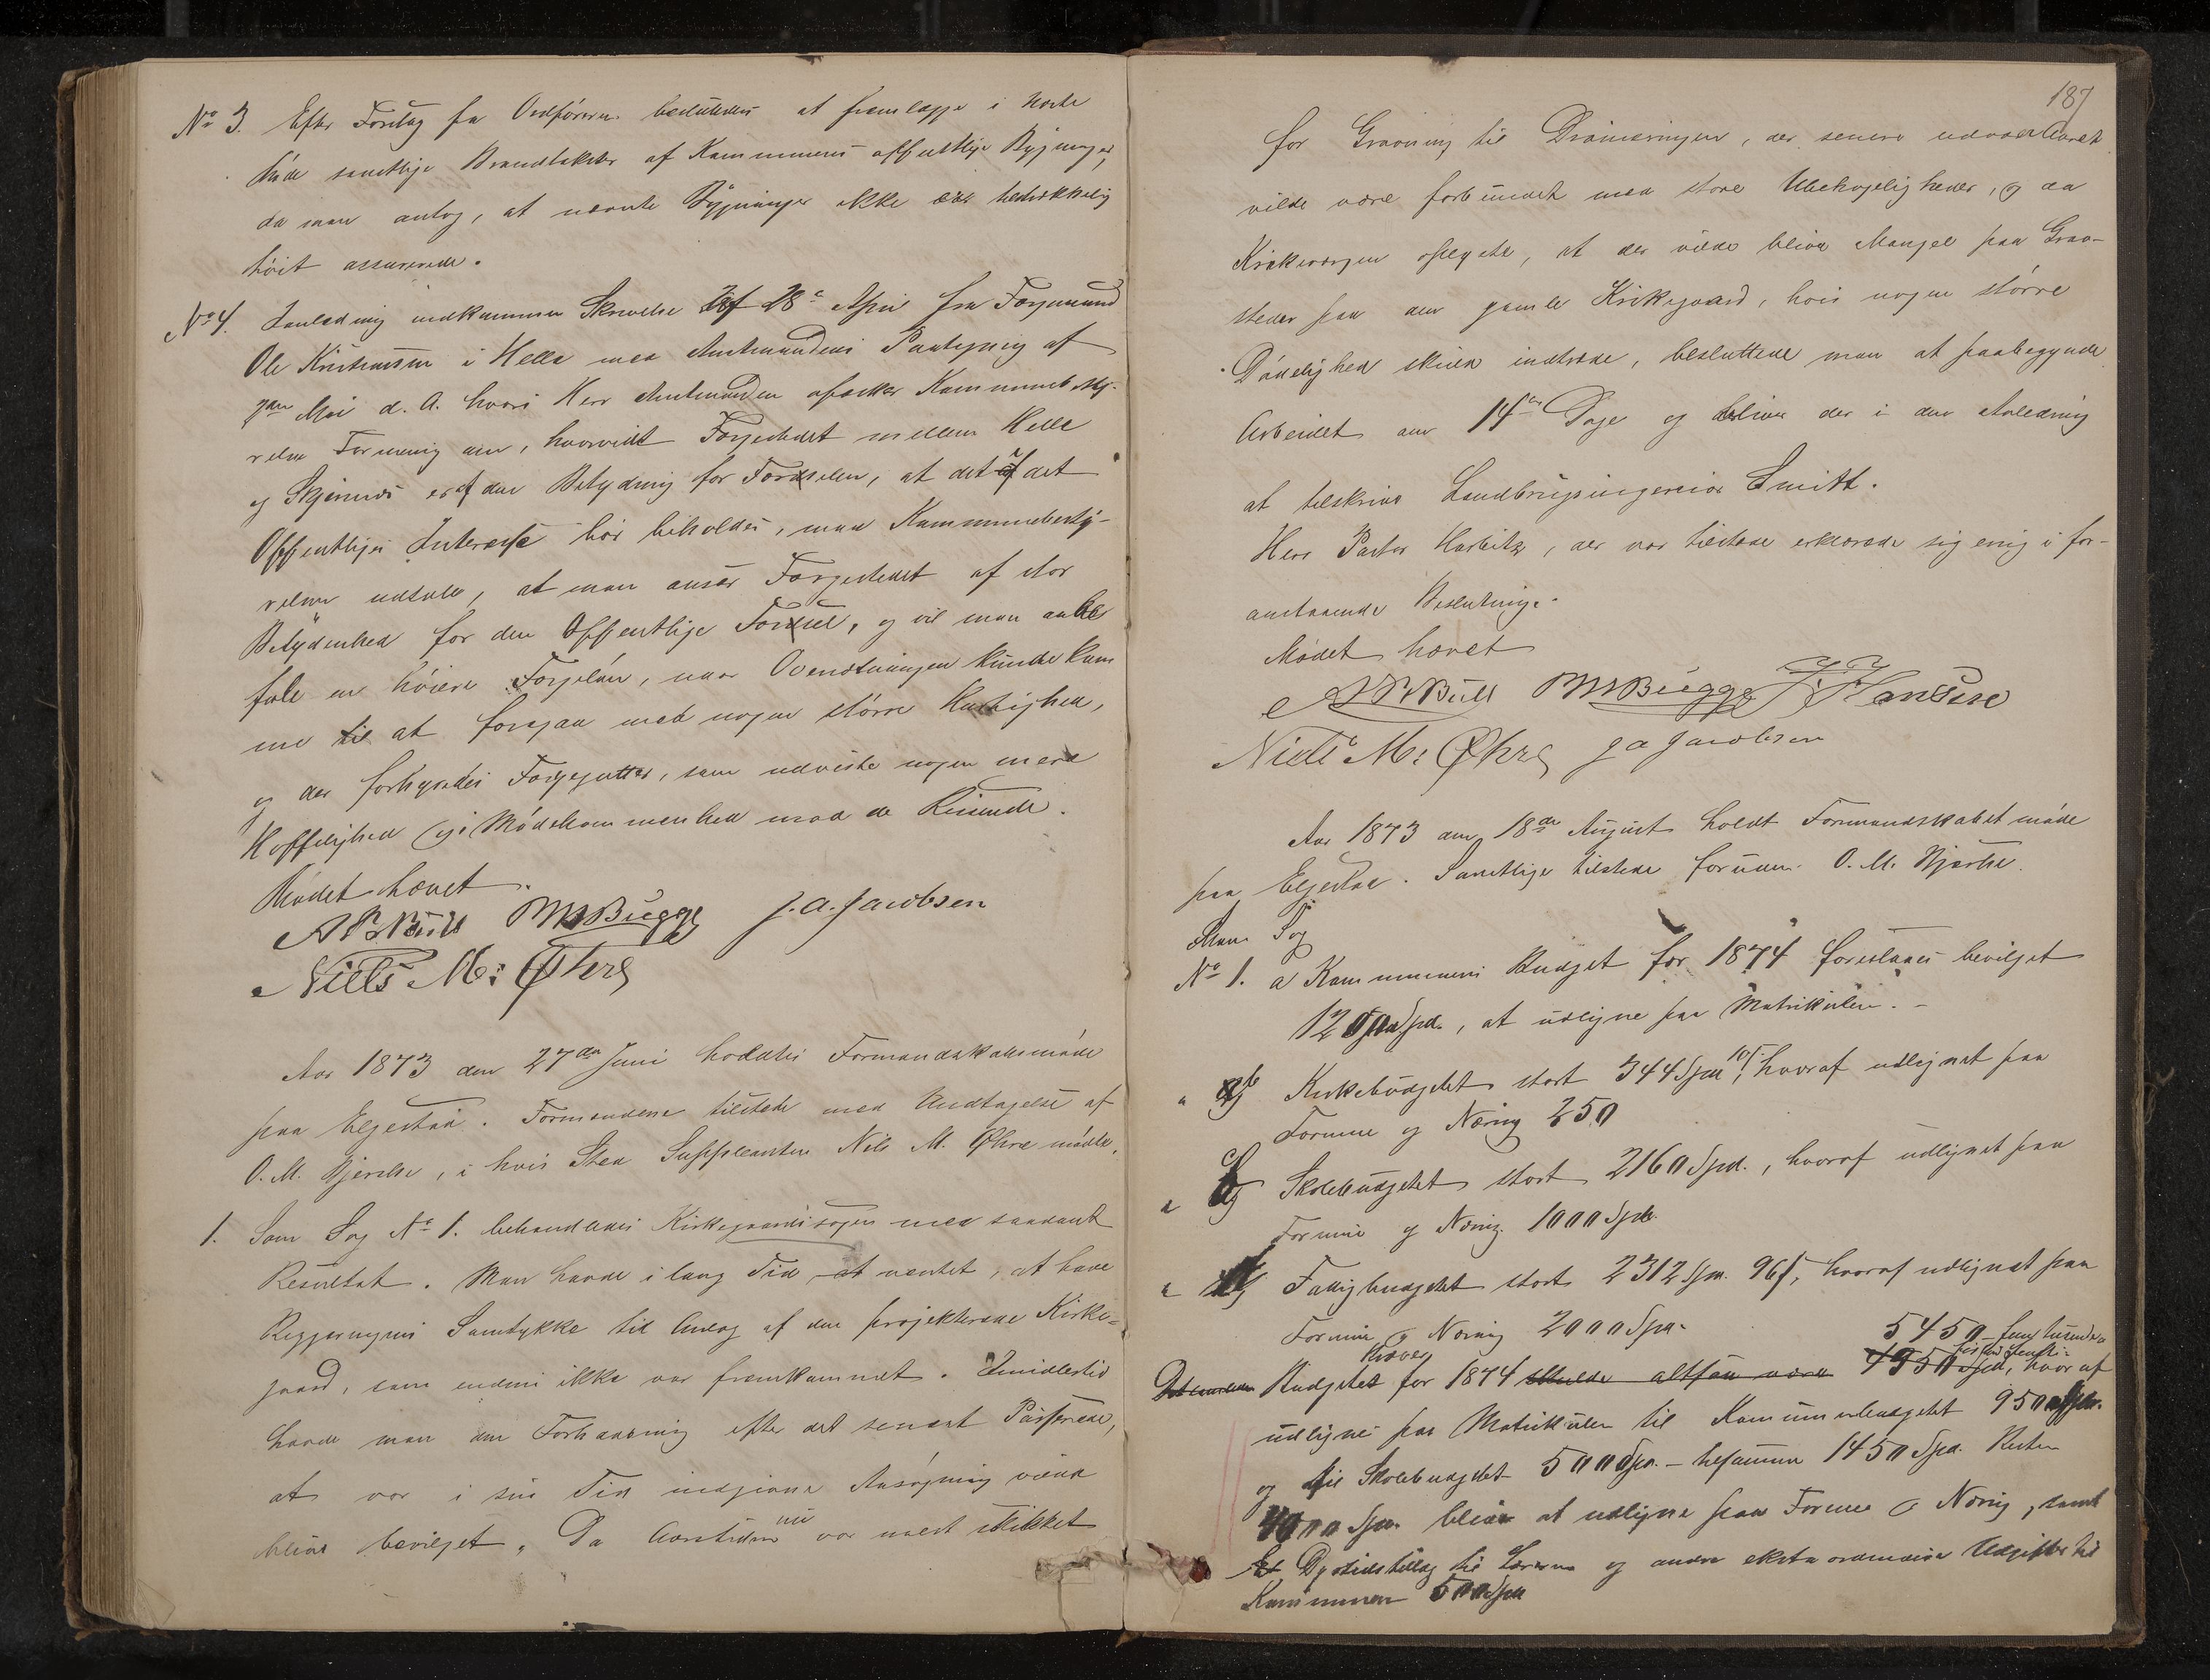 No 3. Efter Foretag fra Ordføreren besluttedes at fremlægge i næste
Møde samtlige Brandtakster af Kommunens offentlige Bygninger,
da man antog, at nævnte Bygninger ikke ere tilstrækkelig
høit assurerede.
No 4. I Anledning indkommen Skrivelse af 28e April fra Færgemand
Ole Kristiansen i Helle med Amtmandens Paategning af
7de Mai d. A. hvori Herr Amtmanden afæsker Kommunebesty-
relsen Formening om, hvorvidt Færgestedet mellem Helle
og Skjernæs er af den Betydning for Færdselen, at det i det
Offentliges Interesse bør beholdes, maa Kommunebesty-
relsen udtale, at man anser Færgestedet af stor
Betydenhed for den Offentlige Færdsel, og vil man anbe
fale en høiere Færgeløn, naar Oversætningen kunde kom
me til at foregaa med nogen større Hurtighed,
og der forhyredes Færgegutter, som udviste nogen mere
Høffelighed og Imødekommenhed mod de Reisende.
Mødet hævet.
A B Bull MBugge J. A. Jacobsen
Niels M: Øhre
Aar 1873 den 27de Juni holdtes Formandskabsmøde
paa Elgestad. Formændene tilstede med Undtagelse af
O. M. Bjerche, i hvis Sted Suppleanten Nils M. Øhre mødte.
1. Som Sag No 1. behandledes Kirkegaardssagen med saadant
Resultat. Man havde i lang Tid at ventet, at have
Regjeringens Samtykke til Anlæg af den projekterede Kirke-
gaard, som endnu ikke var fremkommet. Imidlertid
havde man den Forhaabning efter det senest Passerede,
at vor i sin Tid indgivne Ansøgning vilde
blive bevilget. Da Aarstiden nu var mest skikket
187
for Gravning til Dræneringen, der senere udover Aaret
vilde være forbundet med store Ubehageligheder, og da
Kirkeværgen oplyste, at der vilde blive Mangel paa Grav-
steder paa den gamle Kirkegaard, hvis nogen større
Dødelighed skulde indtræde, besluttede man at paabegynde
Arbeidet om 14 Dage og bliver der i den Anledning
at tilskrive Landbrugsingeniør Smitt.
Herr Pastor Harbitz, der var tilstede erklærede sig enig i for-
anstaaende Beslutning.
Mødet hævet
A B Bull MBugge J Hansen
Niels M: Øhre J A Jacobsen
Aar 1873 den 18de August holdt Formandskabet møde
paa Elgestad. Samtlige tilstede foruden O. M. Bjerche.
Som Sag
No 1. a Kommunens Budget for 1874 foreslaaes bevilget
1200 Spd., at udligne paa Matrikulen.-
" b Kirkebudgettet stort 344 Spd, hvoraf udlignet paa
Formue og Næring 250
" c Skolebudgettet stort 2160 Spd., hvoraf udlignet paa
Formue og Næring 1000 Spd.
" d Fattigbudgettet stort 2312 Spd. 96 s, hvoraf udlignet paa
Formue og Næring 2000 Spd. 5450 fem tusende
Budgettet for 1874 kræver skulde altsaa være 4950 Spd, hvoraf
udlignes paa Matrikulen til Kommunebudgettet 950 Spd.
og til Skolebudgettet 500 Spd. - tilsammen 1450 Spd. Resten
4000 Spd. bliver at udligne paa Formue og Næring, samt
Dyrtidstillæg til Lærerne og andre ekstraordinære Udgifter til
Kommunen 500 Spd